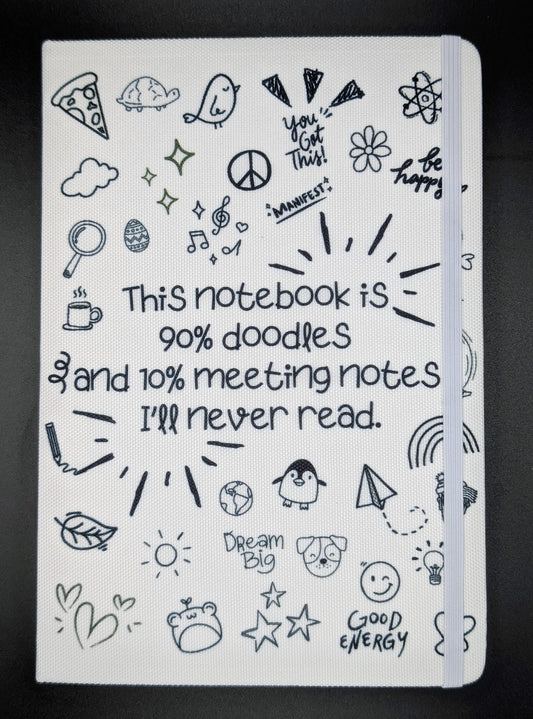 You
Got
This!
be
happy
MANIFEST
This notebook is
90% doodles
and 10% meeting notes
I'll never read.
Dream
Big
GOOD
ENERGY